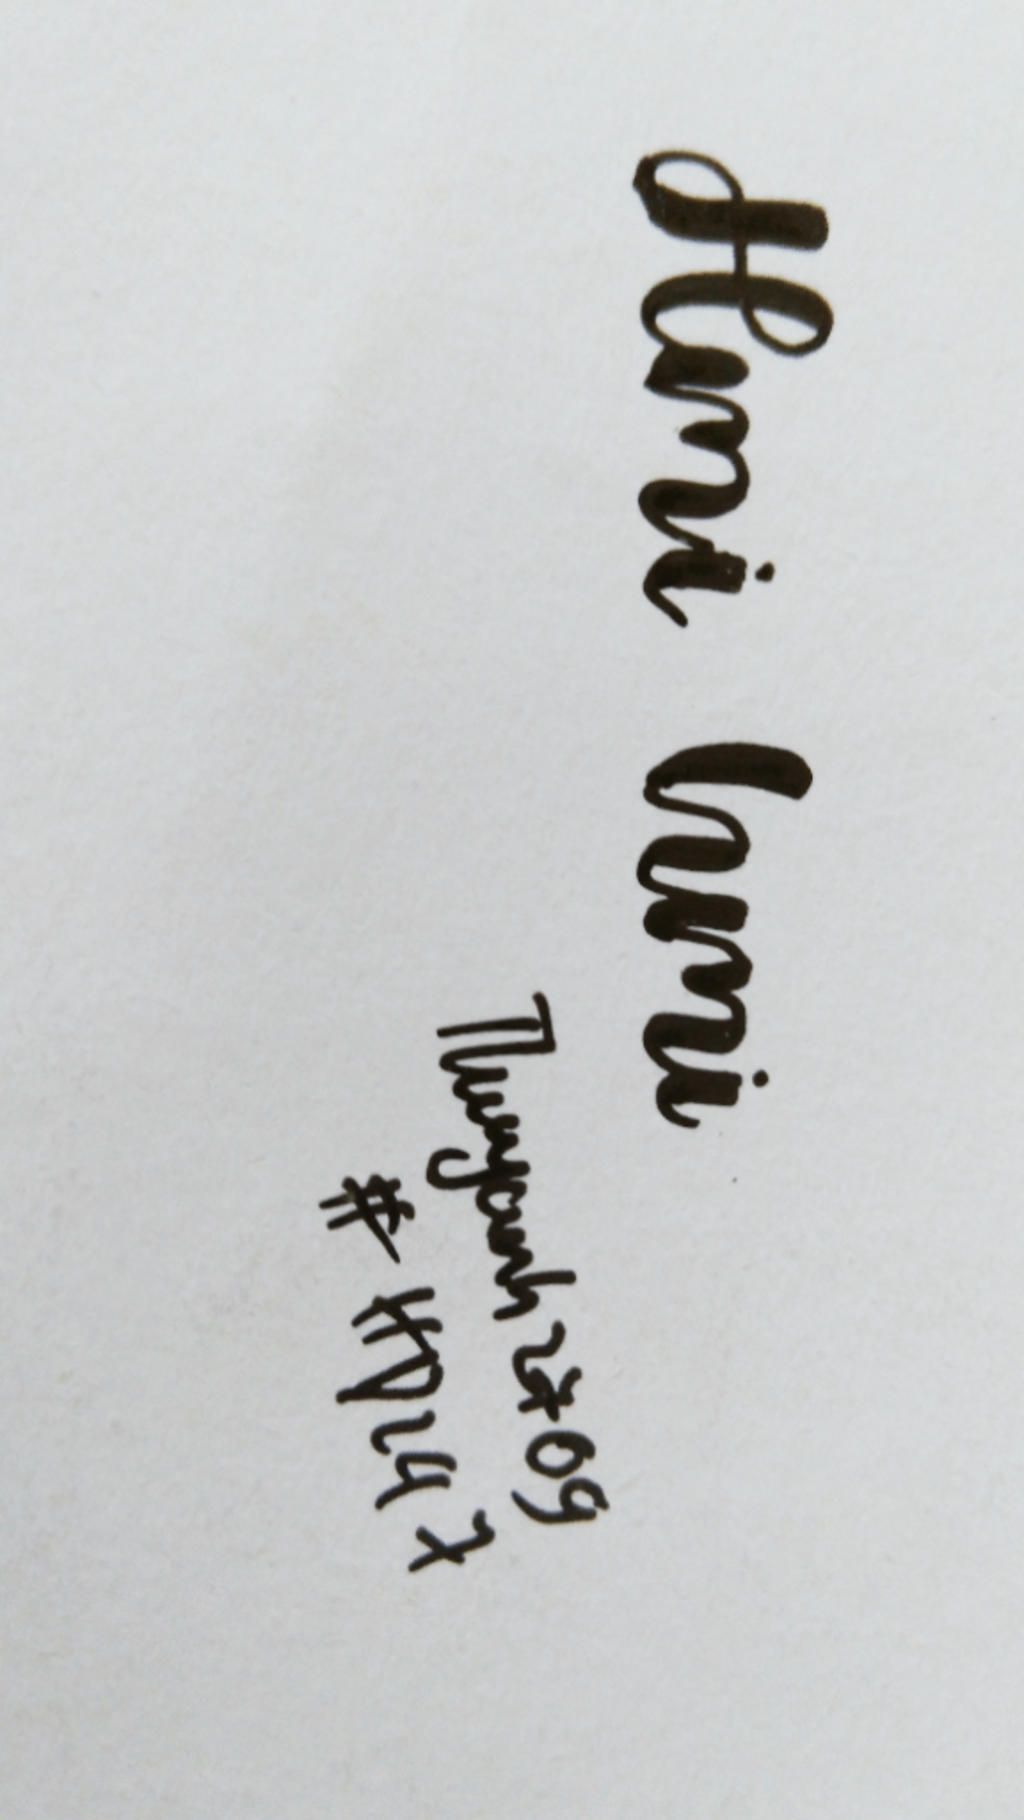 Humi lumi
Thuyanh2709
#HD247